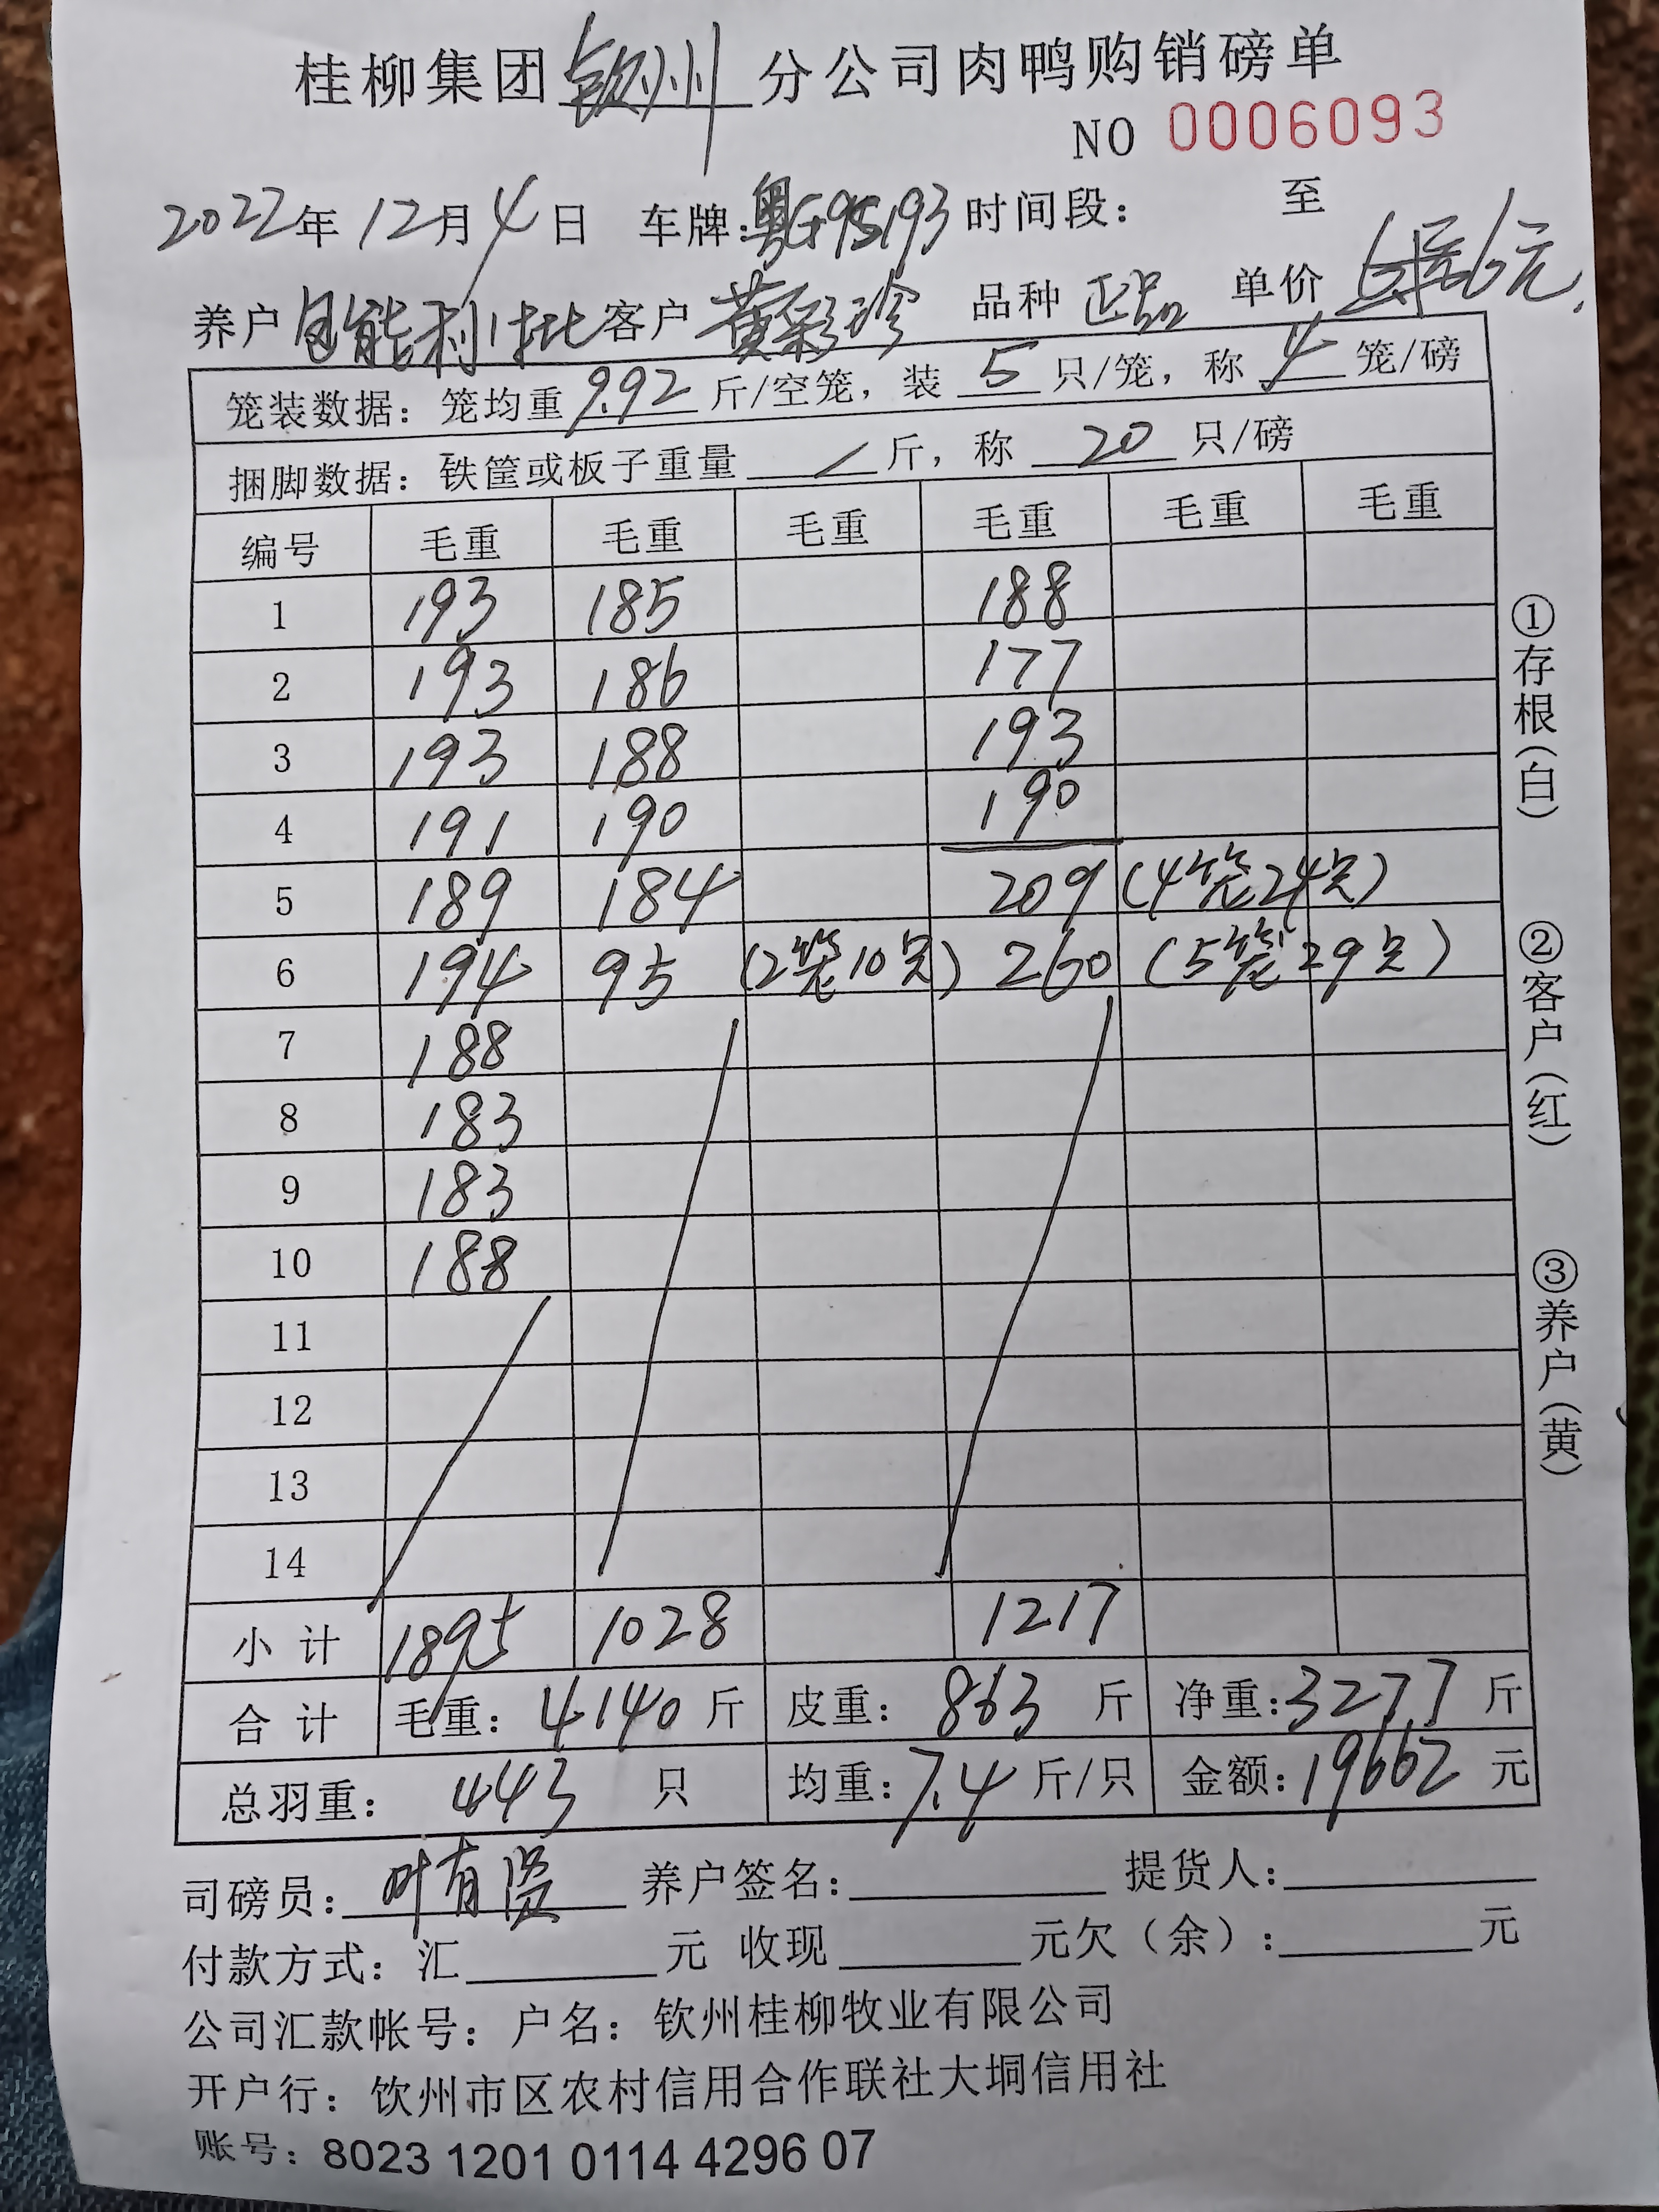 桂柳集团钦州分公司肉鸭购销磅单
NO 0006093
2022年12月4日 车牌:粤G95193 时间段: 至
养户 能利 客户 黄彩珍 品种 正品 单价 6元
笼装数据: 笼均重 9.92 斤/空笼, 装 5 只/笼, 称 4 笼/磅
捆脚数据: 铁筐或板子重量 / 斤, 称 20 只/磅
编号 毛重 毛重 毛重 毛重 毛重 毛重
1 193 185 188
2 193 186 177
3 193 188 193
4 191 190 190
5 189 184 209 (4笼24只)
6 194 95 (2笼10只) 260 (5笼29只)
7 188
8 183
9 183
10 188
11
12
13
14
小计 1895 1028 1217
合计 毛重: 4140 斤 皮重: 863 斤 净重: 3277 斤
总羽重: 443 只 均重: 7.4 斤/只 金额: 19662 元
司磅员: 叶有 养户签名: 提货人:
付款方式: 汇 元 收现 元欠(余): 元
公司汇款帐号: 户名: 钦州桂柳牧业有限公司
开户行: 钦州市区农村信用合作联社大垌信用社
账号: 8023 1201 0114 4296 07
①存根(白)
②客户(红)
③养户(黄)